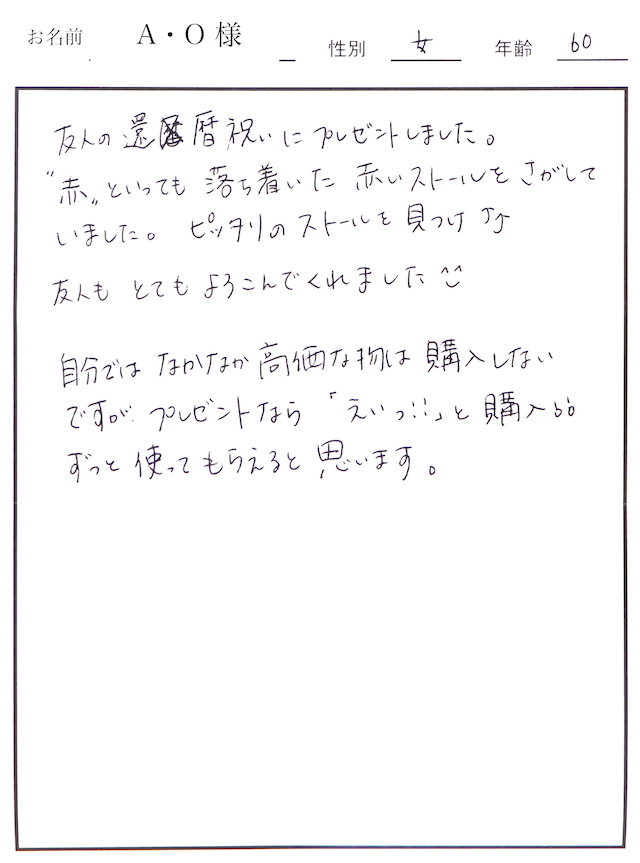 お名前 A・O様 性別 女 年齢 60
友人の還暦祝いにプレゼントしました。
"赤"といっても 落ち着いた 赤いストールを さがして
いました。 ピッタリの ストールを 見つけ ⤴⤴
友人も とても よろこんでくれました ^^
自分では なかなか 高価な物は 購入しない
ですが、プレゼントなら 「えいっ!!」と 購入
ずっと 使って もらえると 思います。